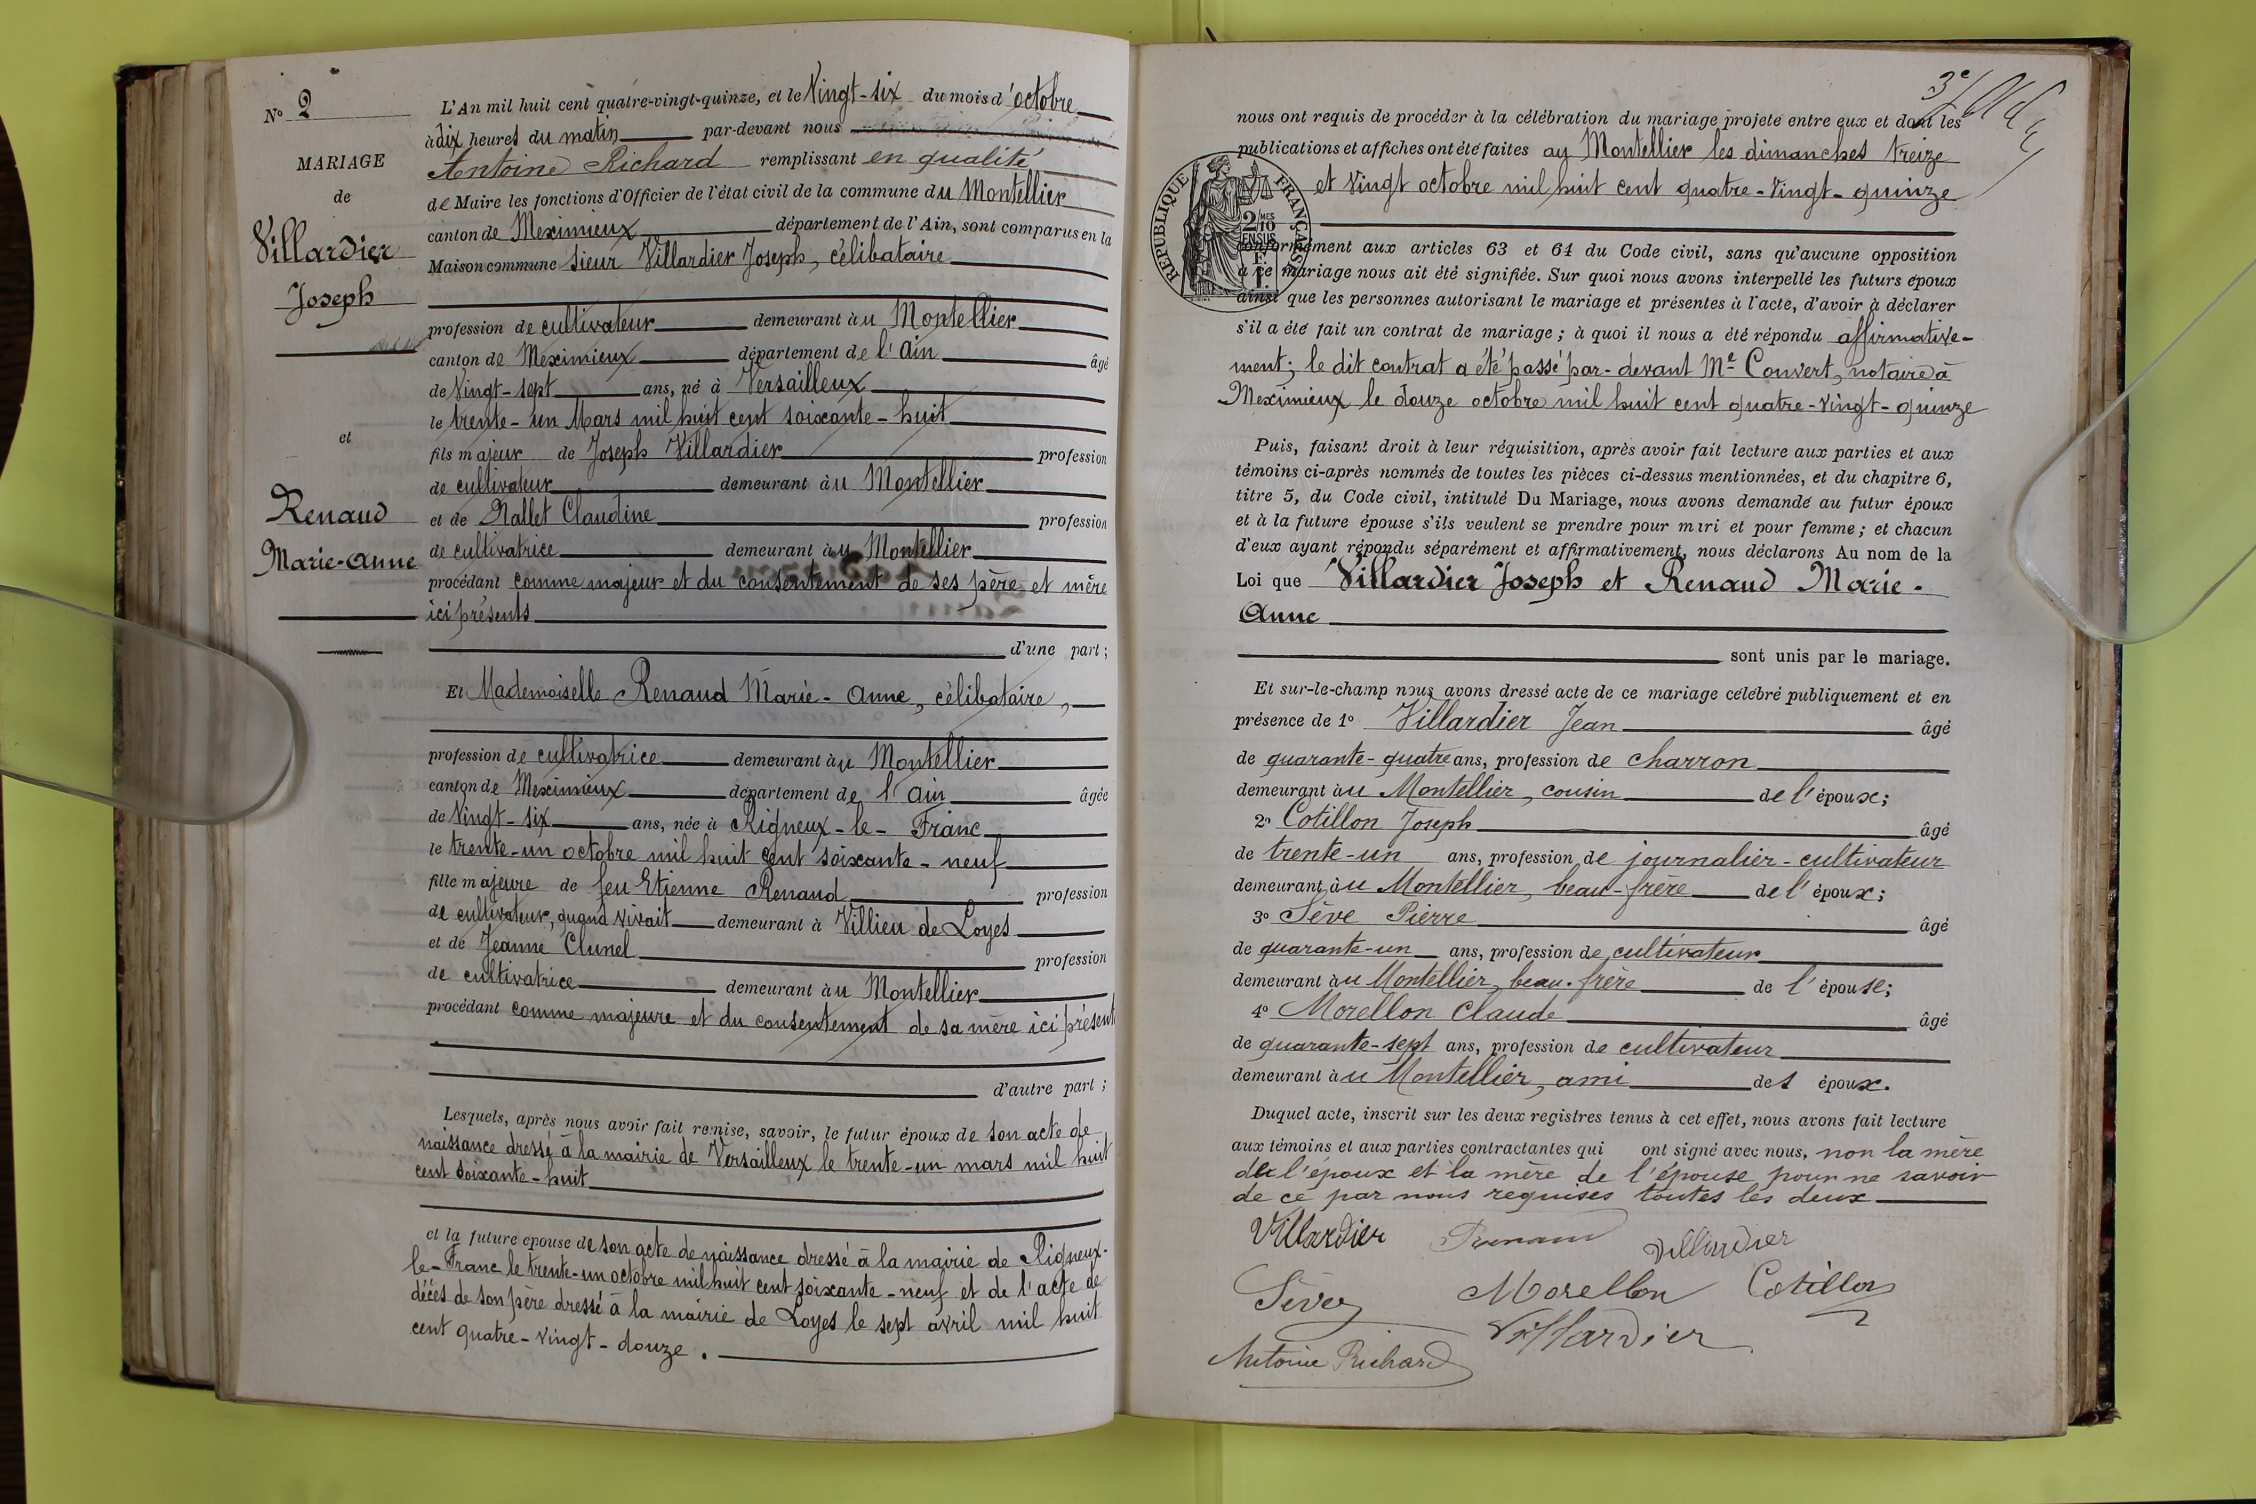 No 2
MARIAGE
de
Villardier
Joseph
et
Renaud
Marie-Anne
L'An mil huit cent quatre-vingt-quinze, et le Vingt-six du mois d'octobre
à dix heures du matin par-devant nous
Antoine Richard remplissant en qualité
de Maire les fonctions d'Officier de l'état civil de la commune du Montellier
canton de Meximieux département de l'Ain, sont comparus en la
Maison commune Sieur Villardier Joseph, célibataire
profession de cultivateur demeurant au Montellier
canton de Meximieux département de l'Ain âgé
de Vingt-sept ans, né à Versailleux
le trente-un Mars mil huit cent soixante-huit
fils majeur de Joseph Villardier profession
de cultivateur demeurant au Montellier
et de Nallet Claudine profession
de cultivatrice demeurant au Montellier
procédant comme majeur et du consentement de ses père et mère
ici présents
d'une part;
Et Mademoiselle Renaud Marie-Anne, célibataire,
profession de cultivatrice demeurant au Montellier
canton de Meximieux département de l'Ain âgée
de Vingt-six ans, née à Rigneux-le-Franc
le trente-un octobre mil huit cent soixante-neuf
fille majeure de feu Etienne Renaud profession
de cultivateur, quand vivait demeurant à Villieu de Loyes
et de Jeanne Clunel profession
de cultivatrice demeurant au Montellier
procédant comme majeure et du consentement de sa mère ici présent
d'autre part;
Lesquels, après nous avoir fait remise, savoir, le futur époux de son acte de
naissance dressé à la mairie de Versailleux le trente-un mars mil huit
cent soixante-huit
et la future épouse de son acte de naissance dressé à la mairie de Rigneux-
le-Franc le trente-un octobre mil huit cent soixante-neuf et de l'acte de
décès de son père dressé à la mairie de Loyes le sept avril mil huit
cent quatre-vingt-douze.
3e
nous ont requis de procéder à la célébration du mariage projeté entre eux et dont les
publications et affiches ont été faites au Montellier les dimanches treize
et vingt octobre mil huit cent quatre-vingt-quinze
RÉPUBLIQUE FRANÇAISE
2 MES
10
EN SUS
conformément aux articles 63 et 64 du Code civil, sans qu'aucune opposition
à ce mariage nous ait été signifiée. Sur quoi nous avons interpellé les futurs époux
ainsi que les personnes autorisant le mariage et présentes à l'acte, d'avoir à déclarer
s'il a été fait un contrat de mariage; à quoi il nous a été répondu affirmative-
ment; le dit contrat a été passé par-devant Me Convert, notaire à
Meximieux le douze octobre mil huit cent quatre-vingt-quinze
Puis, faisant droit à leur réquisition, après avoir fait lecture aux parties et aux
témoins ci-après nommés de toutes les pièces ci-dessus mentionnées, et du chapitre 6,
titre 5, du Code civil, intitulé Du Mariage, nous avons demandé au futur époux
et à la future épouse s'ils veulent se prendre pour mari et pour femme; et chacun
d'eux ayant répondu séparément et affirmativement, nous déclarons Au nom de la
Loi que Villardier Joseph et Renaud Marie-
Anne
sont unis par le mariage.
Et sur-le-champ nous avons dressé acte de ce mariage célébré publiquement et en
présence de 1o Villardier Jean âgé
de quarante-quatre ans, profession de charron
demeurant au Montellier, cousin de l'époux;
2o Cotillon Joseph âgé
de trente-un ans, profession de journalier-cultivateur
demeurant au Montellier, beau-frère de l'époux;
3o Sève Pierre âgé
de quarante-un ans, profession de cultivateur
demeurant au Montellier, beau-frère de l'épouse;
4o Morellon Claude âgé
de quarante-sept ans, profession de cultivateur
demeurant au Montellier, ami des époux.
Duquel acte, inscrit sur les deux registres tenus à cet effet, nous avons fait lecture
aux témoins et aux parties contractantes qui ont signé avec nous, non la mère
de l'époux et la mère de l'épouse pour ne savoir
de ce par nous requises toutes les deux
Villardier Renaud Villardier
Sève Morellon Cotillon
Villardier
Antoine Richard